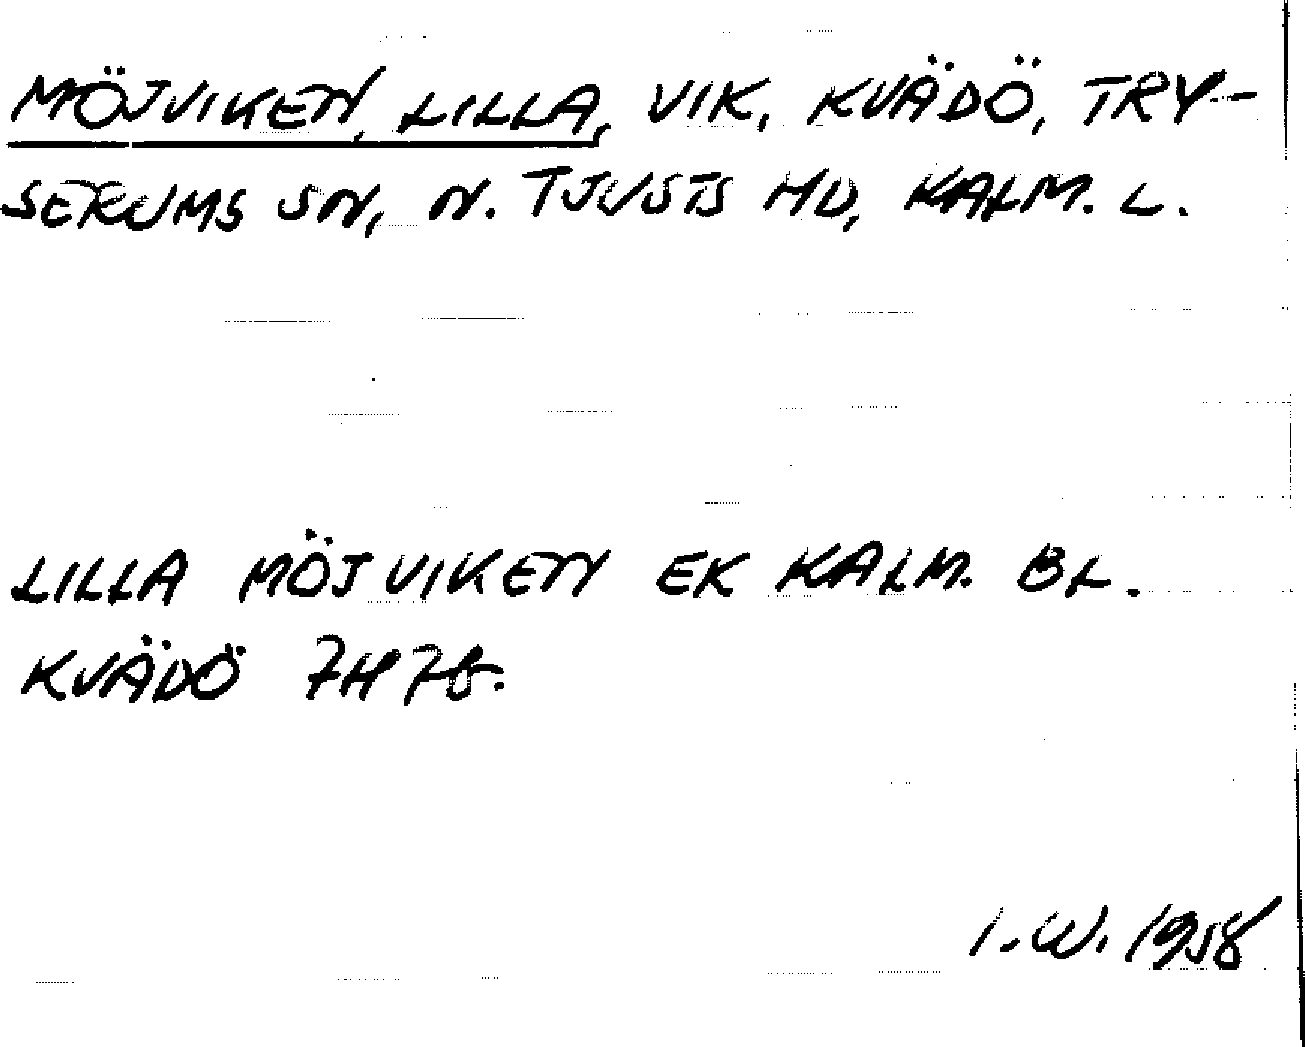 MÖJVIKEN, LILLA, VIK, KVÄDÖ, TRY-
SERUMS SN, N. TJUSTS HD, KALM. L.
LILLA MÖJVIKEN EK KALM. BL.
KVÄDÖ 7H7b.
I.W. 1958